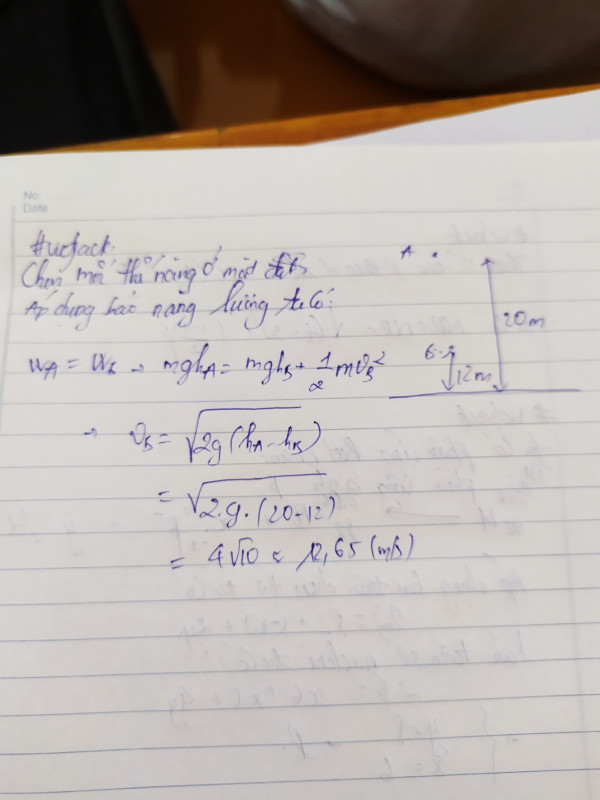 No.
Date
#uefack:
Chọn mốc thế năng ở mặt đất
Áp dụng bảo năng lượng ta có:
W_A = W_B → mgh_A = mgh_B + 1/2 mv_B²
→ v_B = √(2g(h_A - h_B))
= √(2.g.(20-12))
= 4√10 ≈ 12,65 (m/s)
A
20m
B
12m